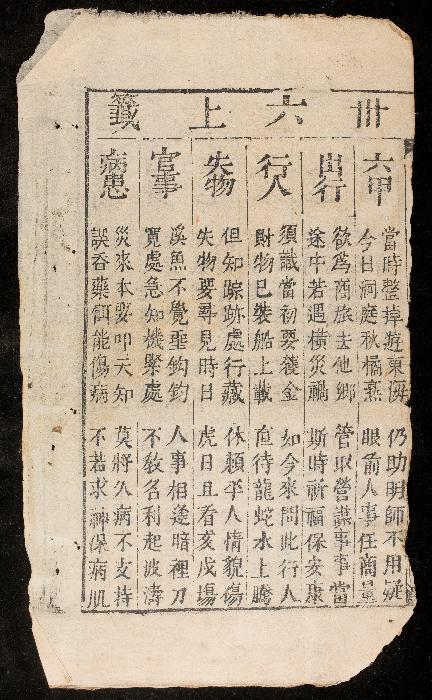 卅六上籤
六甲
當時整棹遊東海 仍助明師不用疑
今日洞庭秋橘熟 眼前人事任商量
出行
欲為商旅去他鄉 管取營謀事事當
途中若遇橫災禍 斯時祈福保安康
行人
須識當初要養金 如今來問此行人
財物已裝船上載 直待龍蛇水上騰
失物
但知踪跡處行藏 休賴平人情貌傷
失物要尋見時日 虎日且看亥戌場
官事
溪魚不覺垂鈎釣 人事相逢暗裡刀
寬處急知機緊處 不教名利起波濤
病患
災來本要叩天知 莫將久病不支持
誤吞藥餌能傷病 不若求神保病肌